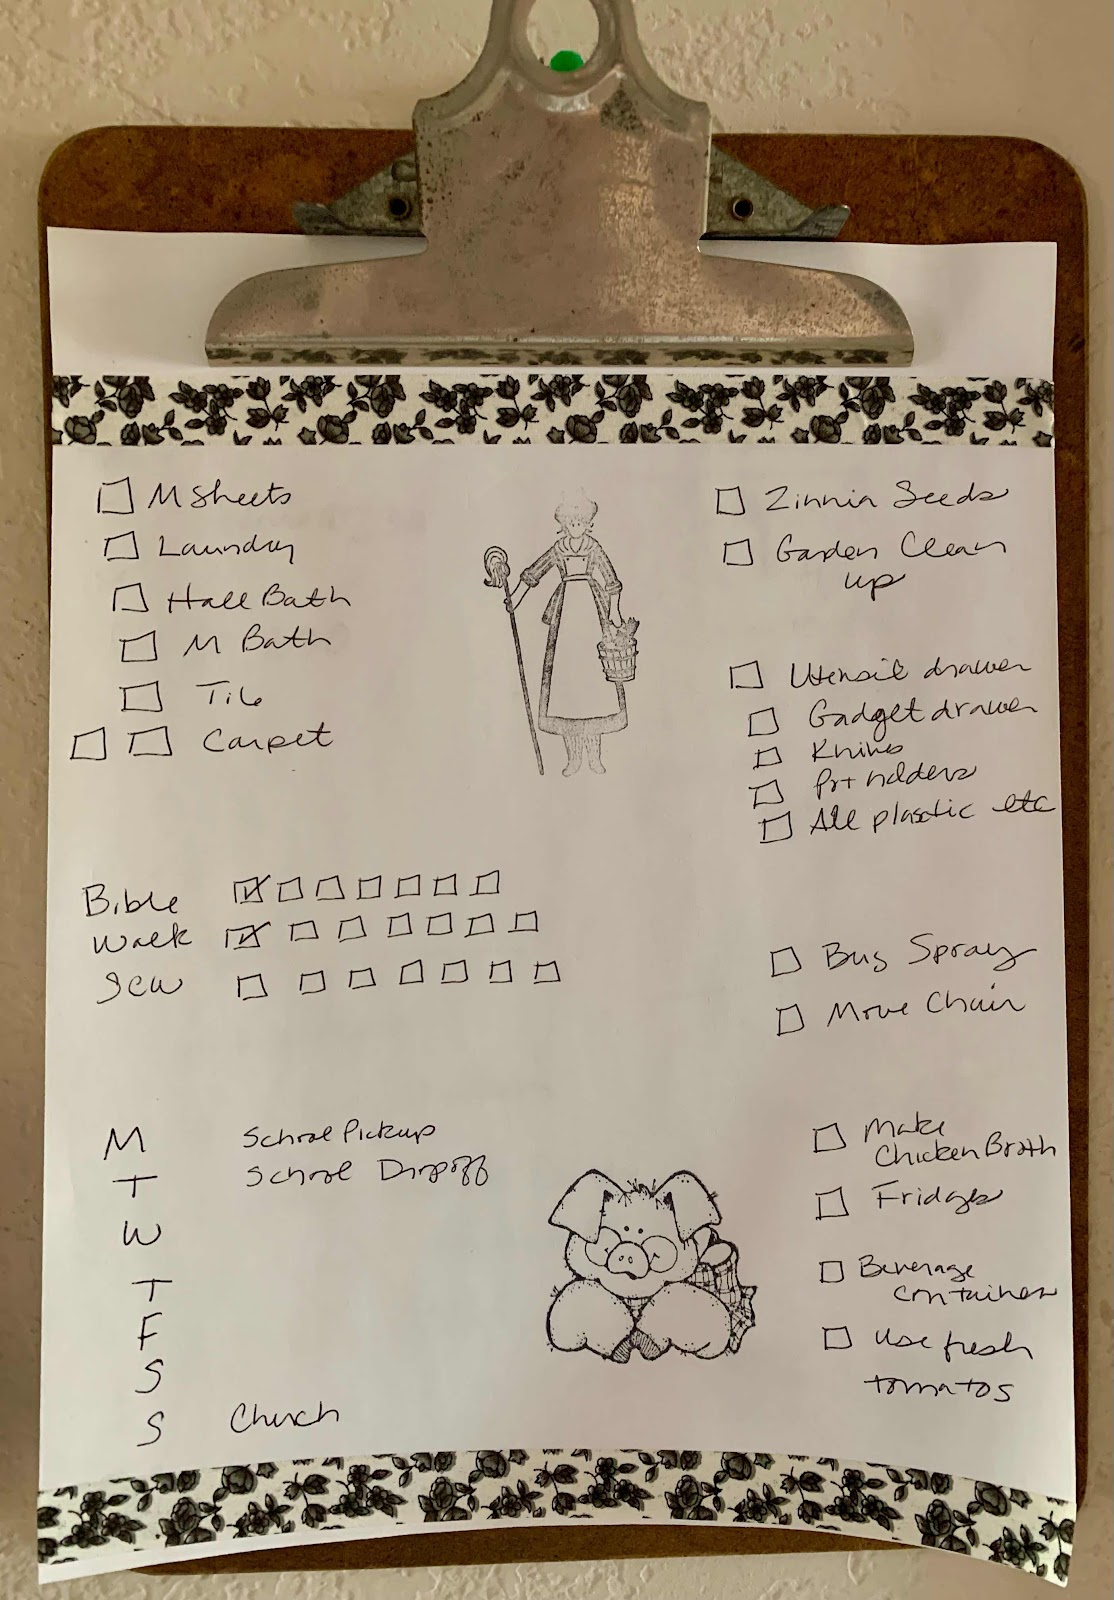 M Sheets
Laundry
Hall Bath
M Bath
Tile
Carpet
Zinnia Seeds
Garden Clean
up
Utensil drawer
Gadget drawer
Knives
Pot holders
All plastic etc
Bible
Walk
Sew
Bug Spray
Move Chair
M School Pickup
T School Dropoff
W
T
F
S
S Church
Make
Chicken Broth
Fridges
Beverage
container
Use fresh
tomatos